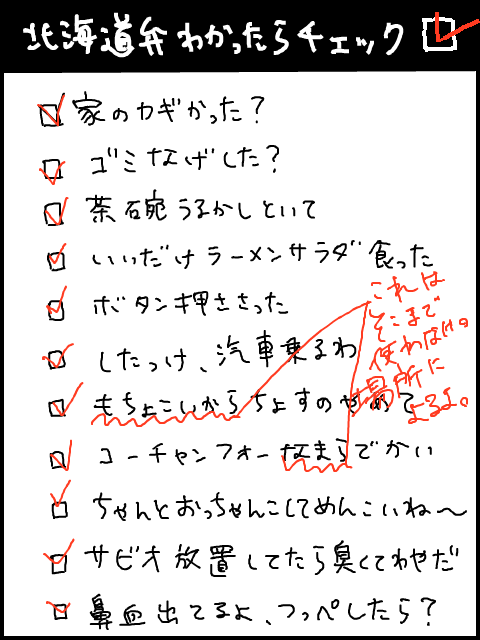 北海道弁わかったらチェック
家のカギかった?
ゴミなげした?
茶碗うるかしといて
いいだけラーメンサラダ食った
ボタン押ささった
したっけ、汽車乗るわ
もちょこいからちょすのやめて
コーチャンフォーなまらでかい
ちゃんとおっちゃんこしてめんこいね〜
サビオ放置してたら臭くてわやだ
鼻血出てるよ、つっぺしたら?
これは
そこまで
使わない。
場所に
よるよ。